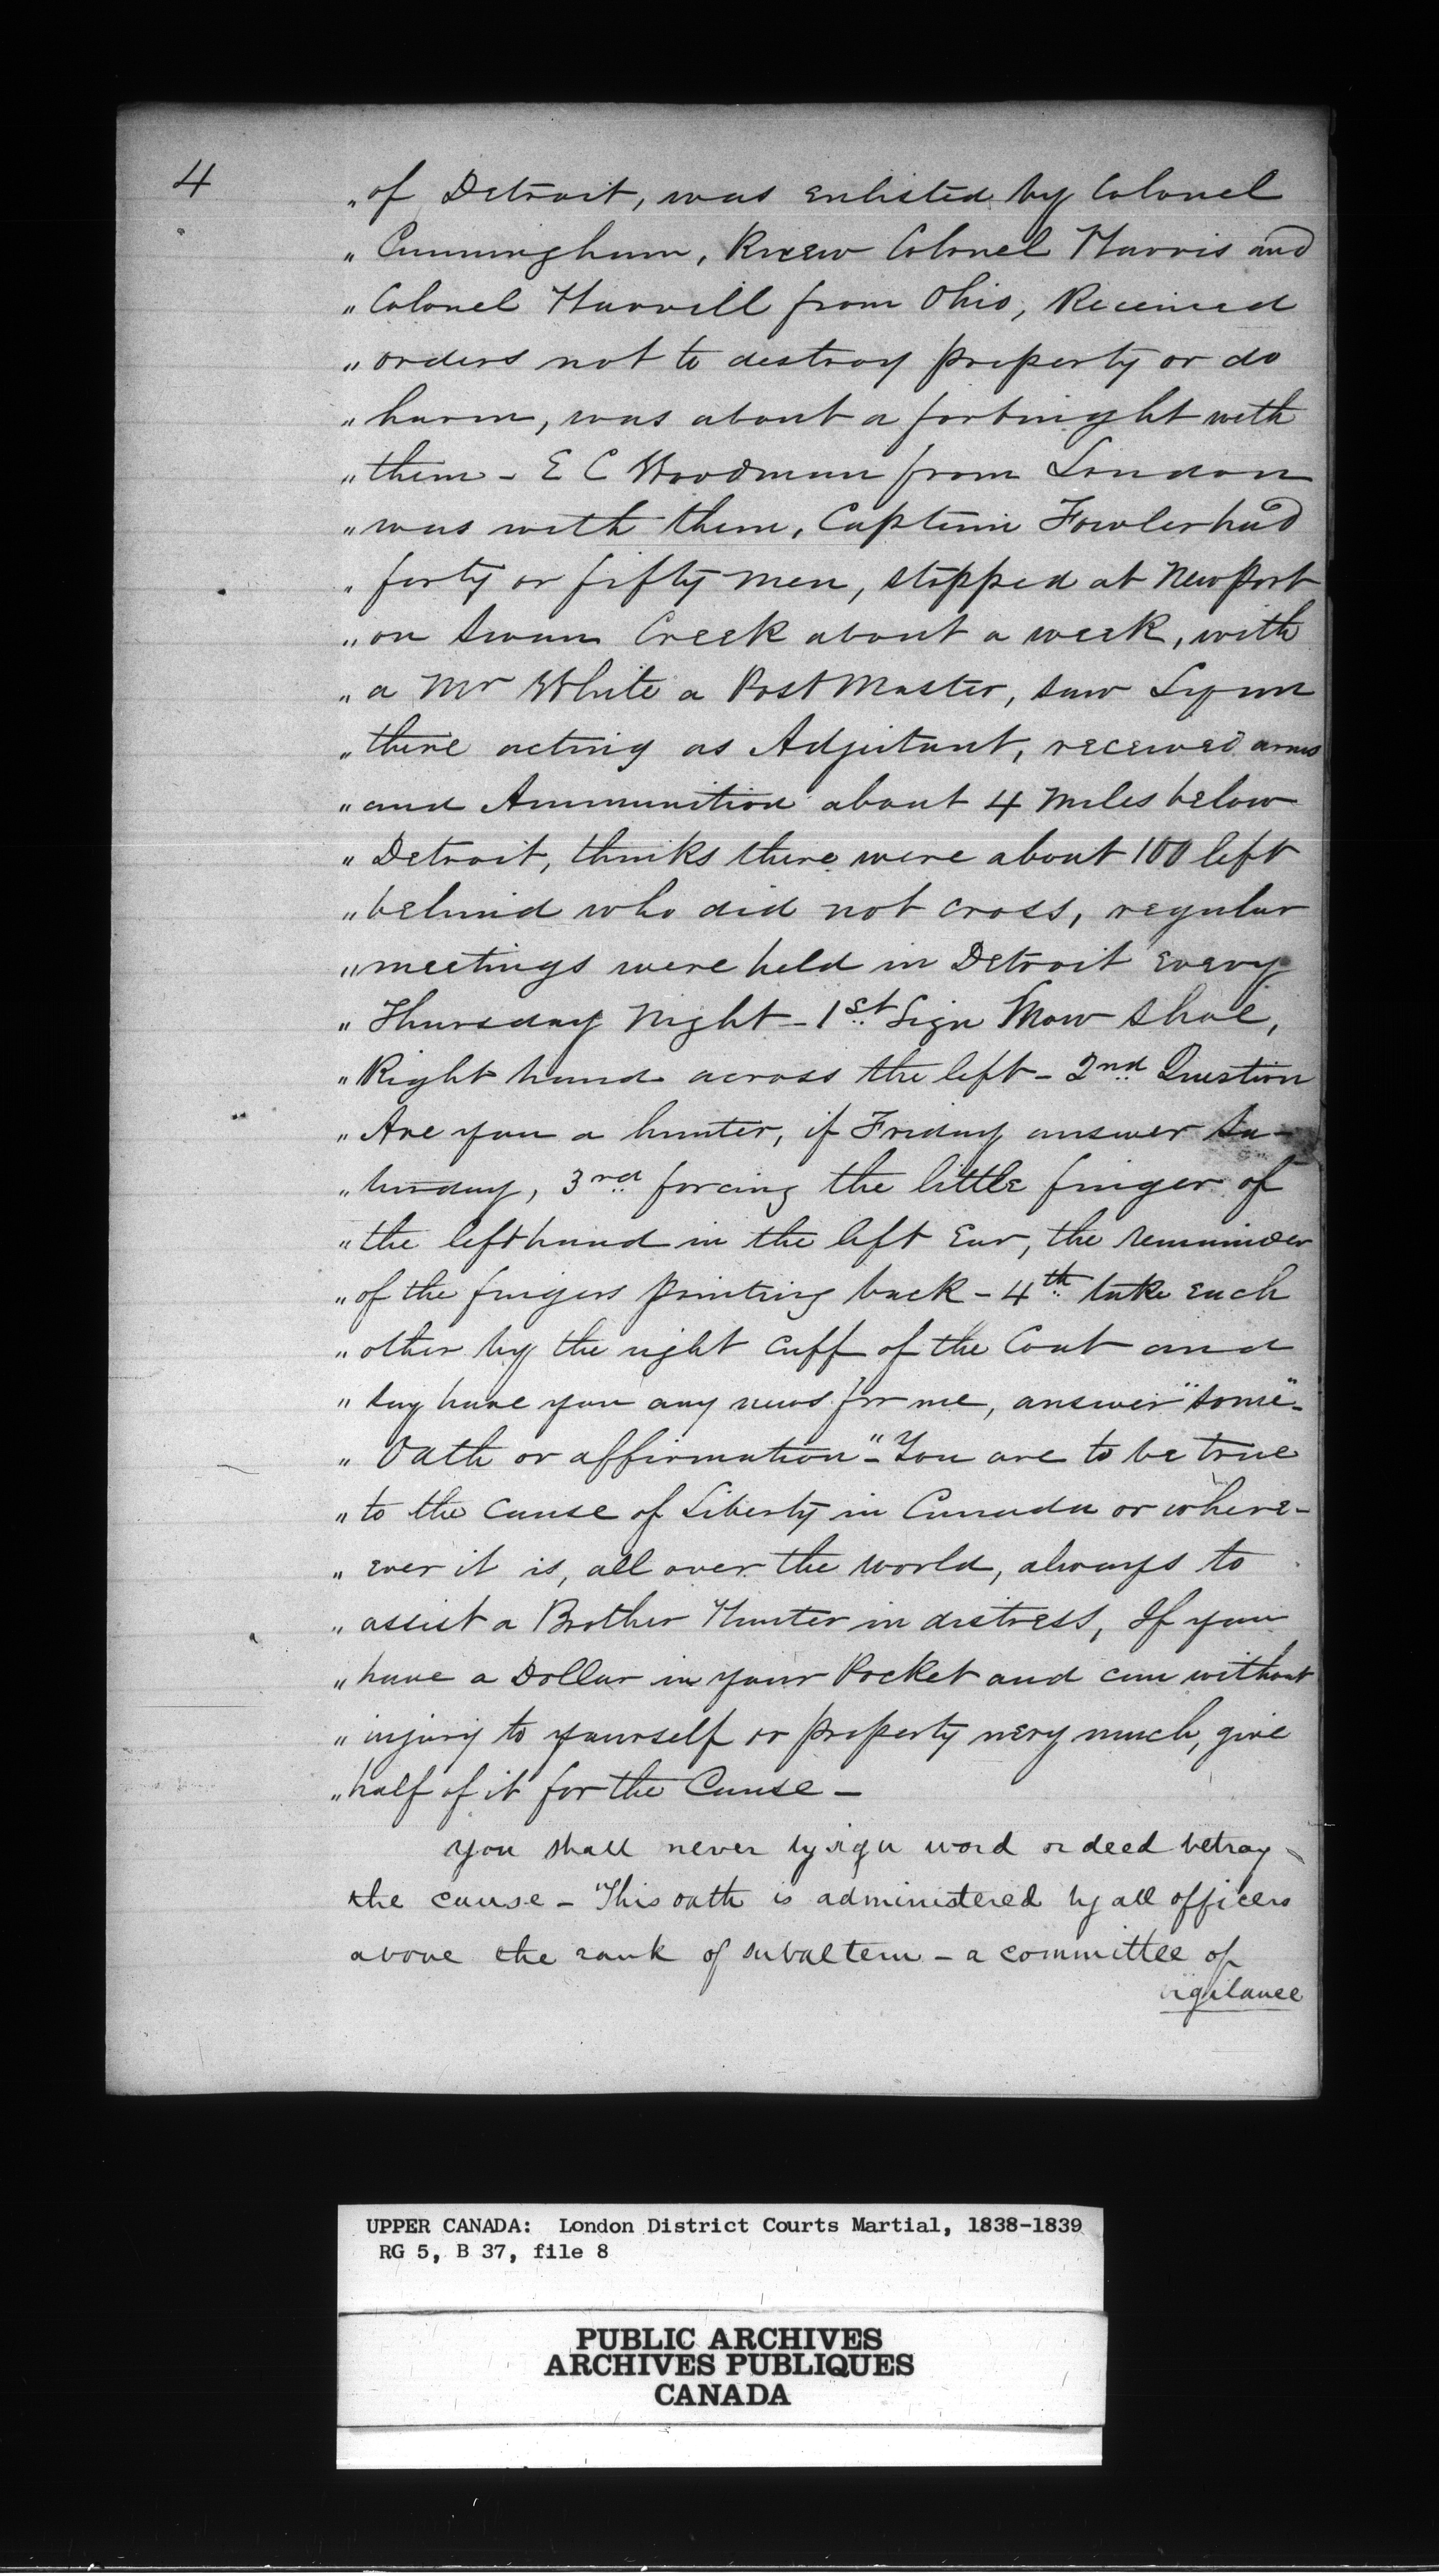 4
„ of Detroit, was enlisted by Colonel
„ Cunningham, Knew Colonel Harris and
„ Colonel Harvell from Ohio, Received
„ orders not to destroy property or do
„ harm, was about a fortnight with
„ them – E C Woodman from London
„ was with them, Captain Fowler had
„ forty or fifty men, stopped at Newport
„ on Swan Creek about a week, with
„ a Mr White a Post Master, saw Lynn
„ there acting as Adjutant, received arms
„ and Ammunition about 4 Miles below
„ Detroit, thinks there were about 100 left
„ behind who did not cross, regular
„ meetings were held in Detroit every
„ Thursday Night – 1st Sign Snow Shoe,
„ Right hand across the left – 2nd Question
„ Are you a hunter, if Friday answer Sa-
„ turday, 3rd forcing the little finger of
„ the left hand in the left Ear, the remainder
„ of the fingers pointing back – 4th take each
„ other by the right cuff of the Coat and
„ say have you any news for me, answer "some" –
„ Oath or affirmation" – You are to be true
„ to the cause of Liberty in Canada or where-
„ ever it is, all over the world, always to
„ assist a Brother Hunter in distress, If you
„ have a Dollar in your Pocket and can without
„ injury to yourself or property very much, give
„ half of it for the Cause –
You shall never by sign word or deed betray
the cause – This oath is administered by all officers
above the rank of subaltern – a committee of
vigilance
UPPER CANADA: London District Courts Martial, 1838-1839
RG 5, B 37, file 8
PUBLIC ARCHIVES
ARCHIVES PUBLIQUES
CANADA